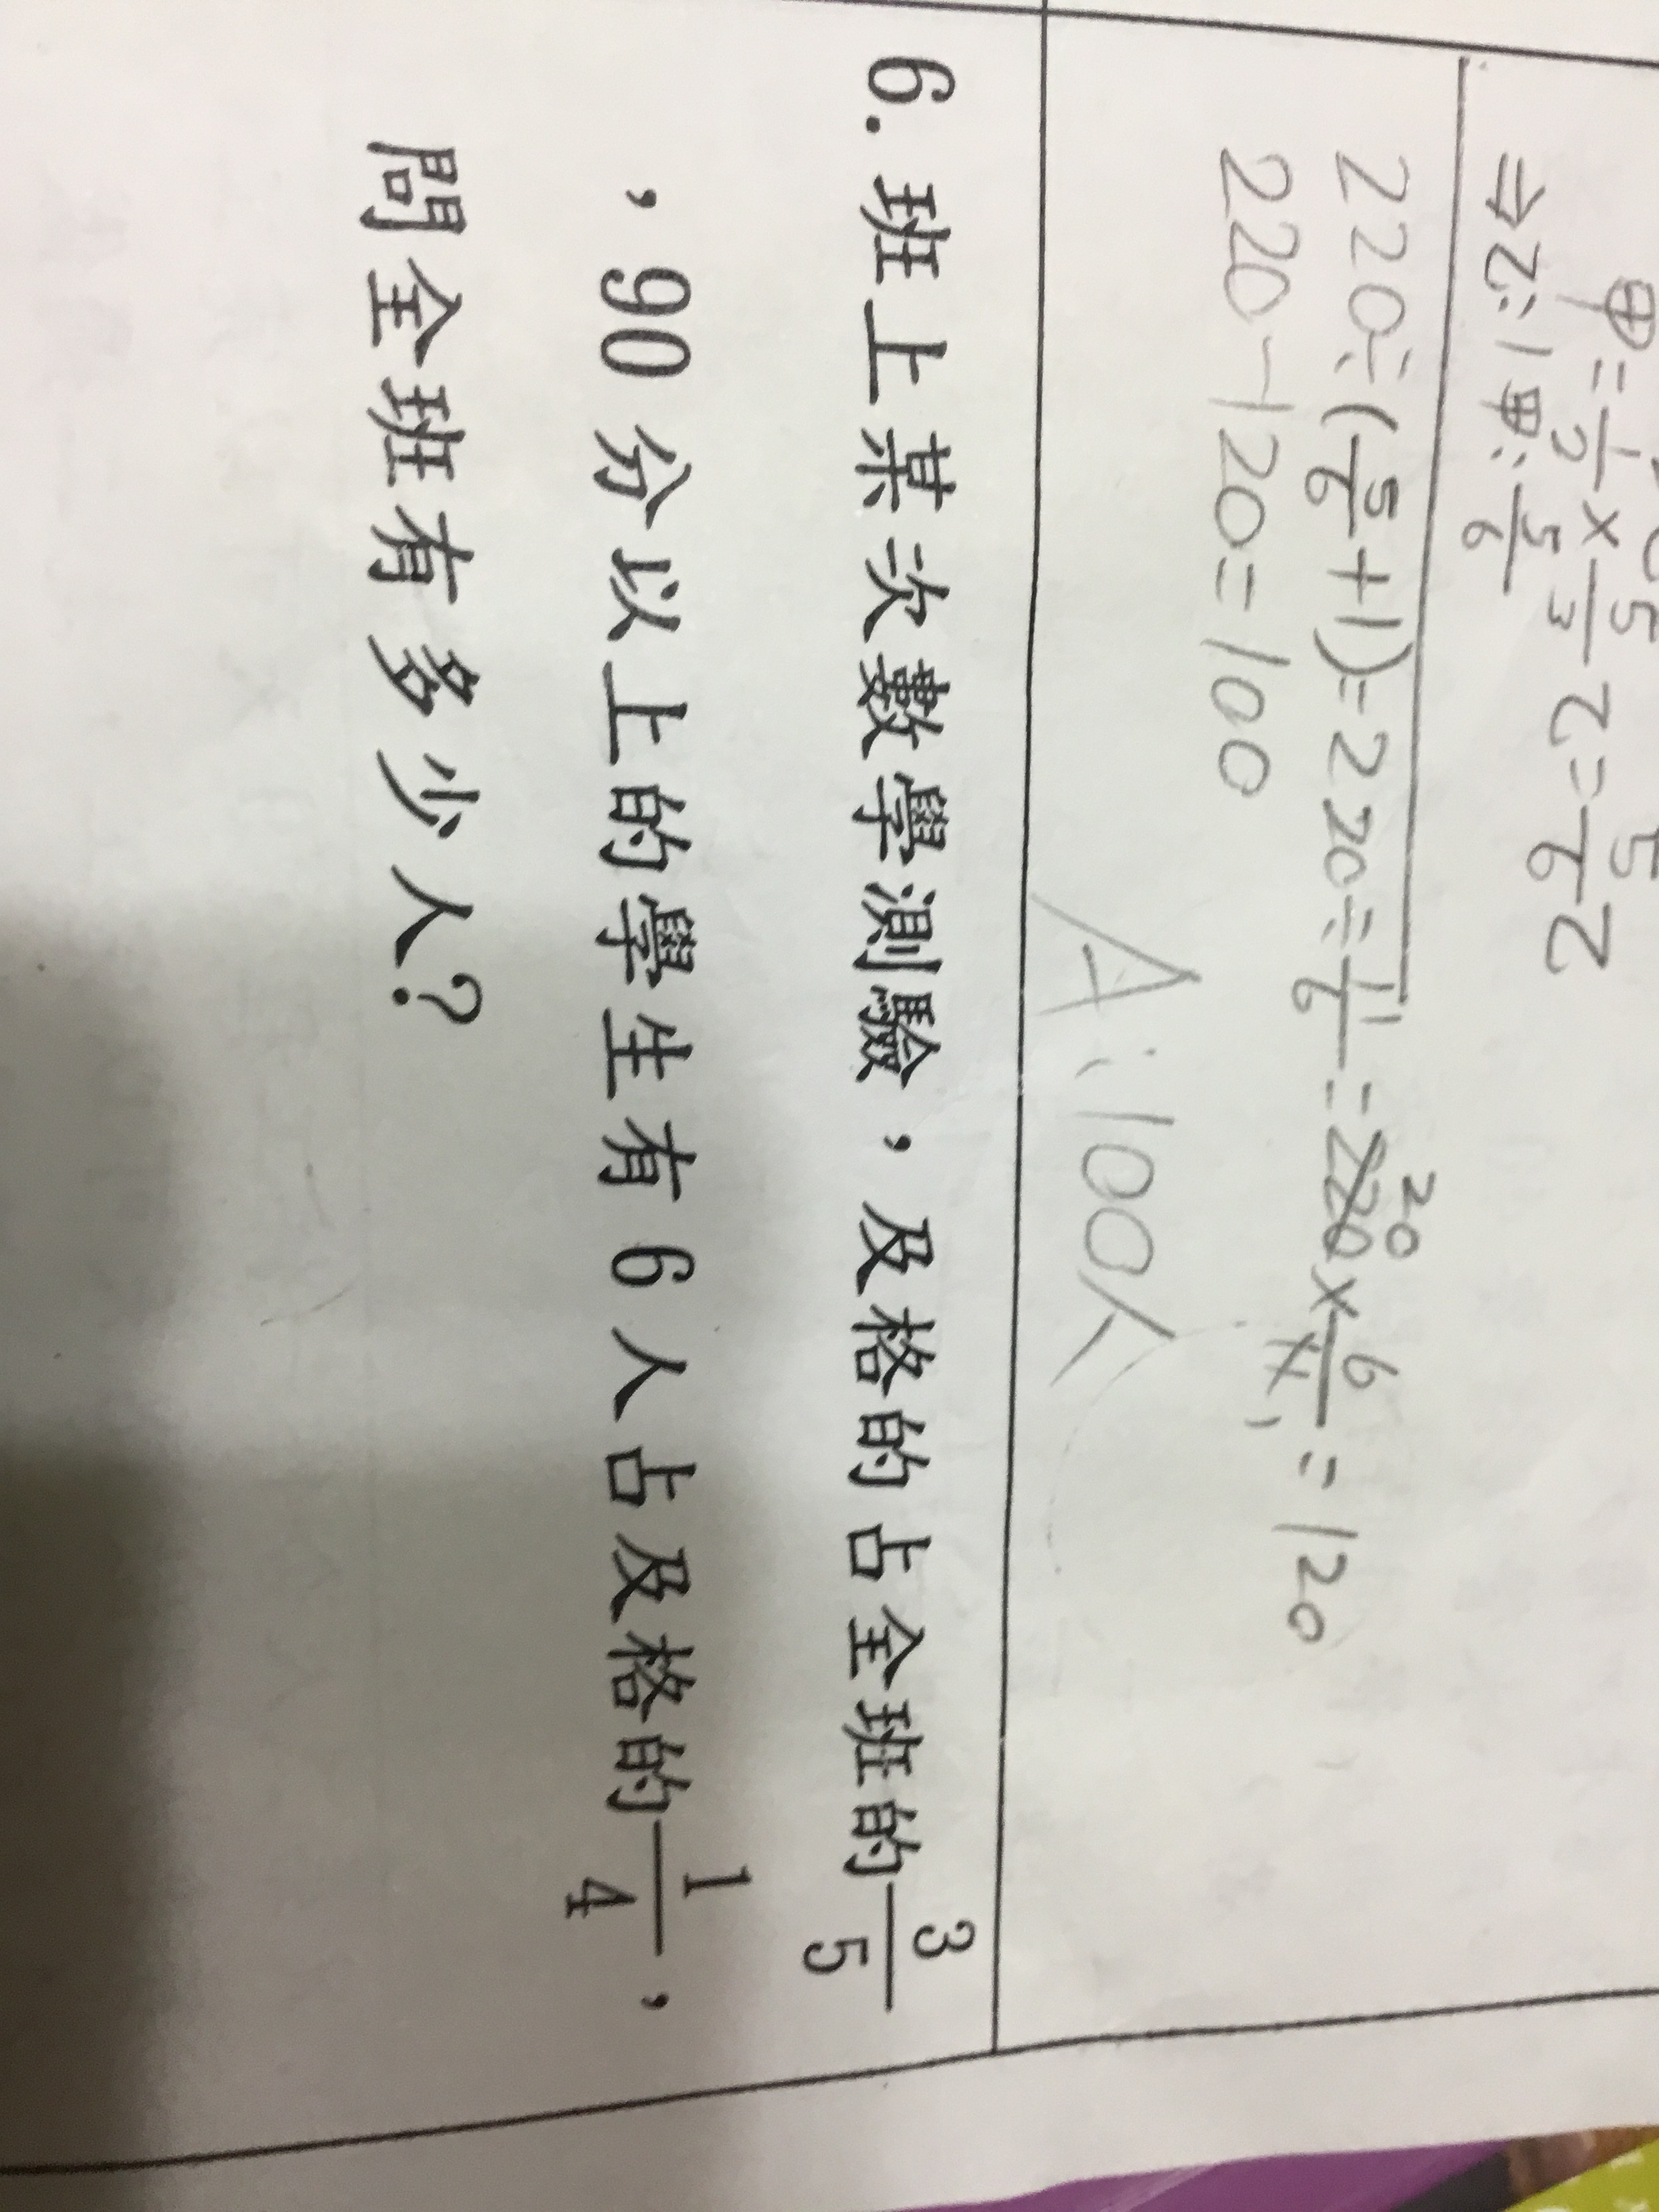 甲=1/2×5/3乙=5/6乙
⇒乙:1 甲:5/6
220÷(5/6+1)=220÷11/6=220×6/11=120
20
1
220-120=100
A:100人
6.班上某次數學測驗,及格的占全班的3/5
,90分以上的學生有6人占及格的1/4,
問全班有多少人?